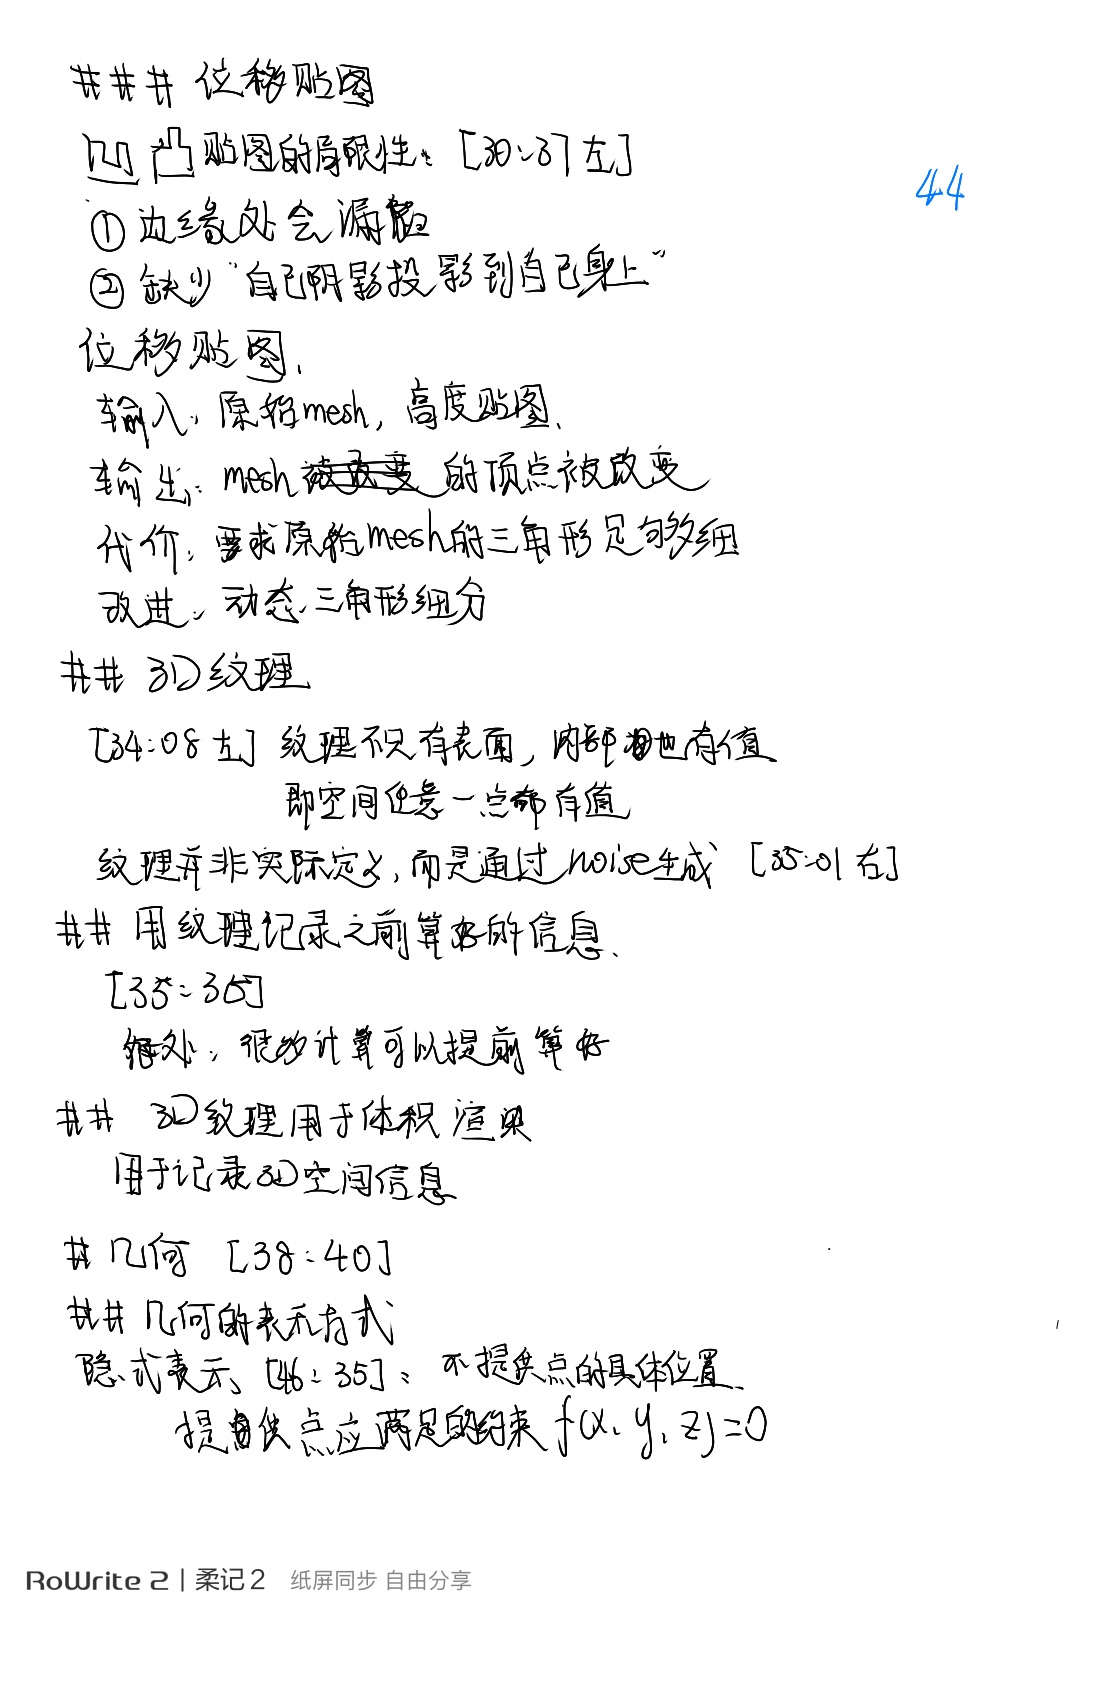 ### 位移贴图
凹凸贴图的局限性：[30:37左]
44
① 边缘处会漏馅
② 缺少“自己阴影投影到自己身上”
位移贴图.
输入：原始mesh, 高度贴图.
输出：mesh的顶点被改变
代价：要求原始mesh的三角形足够细
改进：动态三角形细分
## 3D纹理
[34:08左] 纹理不只有表面, 内部也有值
即空间任意一点都有值
纹理并非实际定义, 而是通过noise生成 [35:01右]
## 用纹理记录之前算好的信息.
[35:36]
好处：很多计算可以提前算好
## 3D纹理用于体积渲染
用于记录3D空间信息
# 几何 [38:40]
## 几何的表示方式
隐式表示、[46:35]：不提供点的具体位置.
提供点应满足的约束 f(x, y, z)=0
RoWrite 2 | 柔记 2 纸屏同步 自由分享